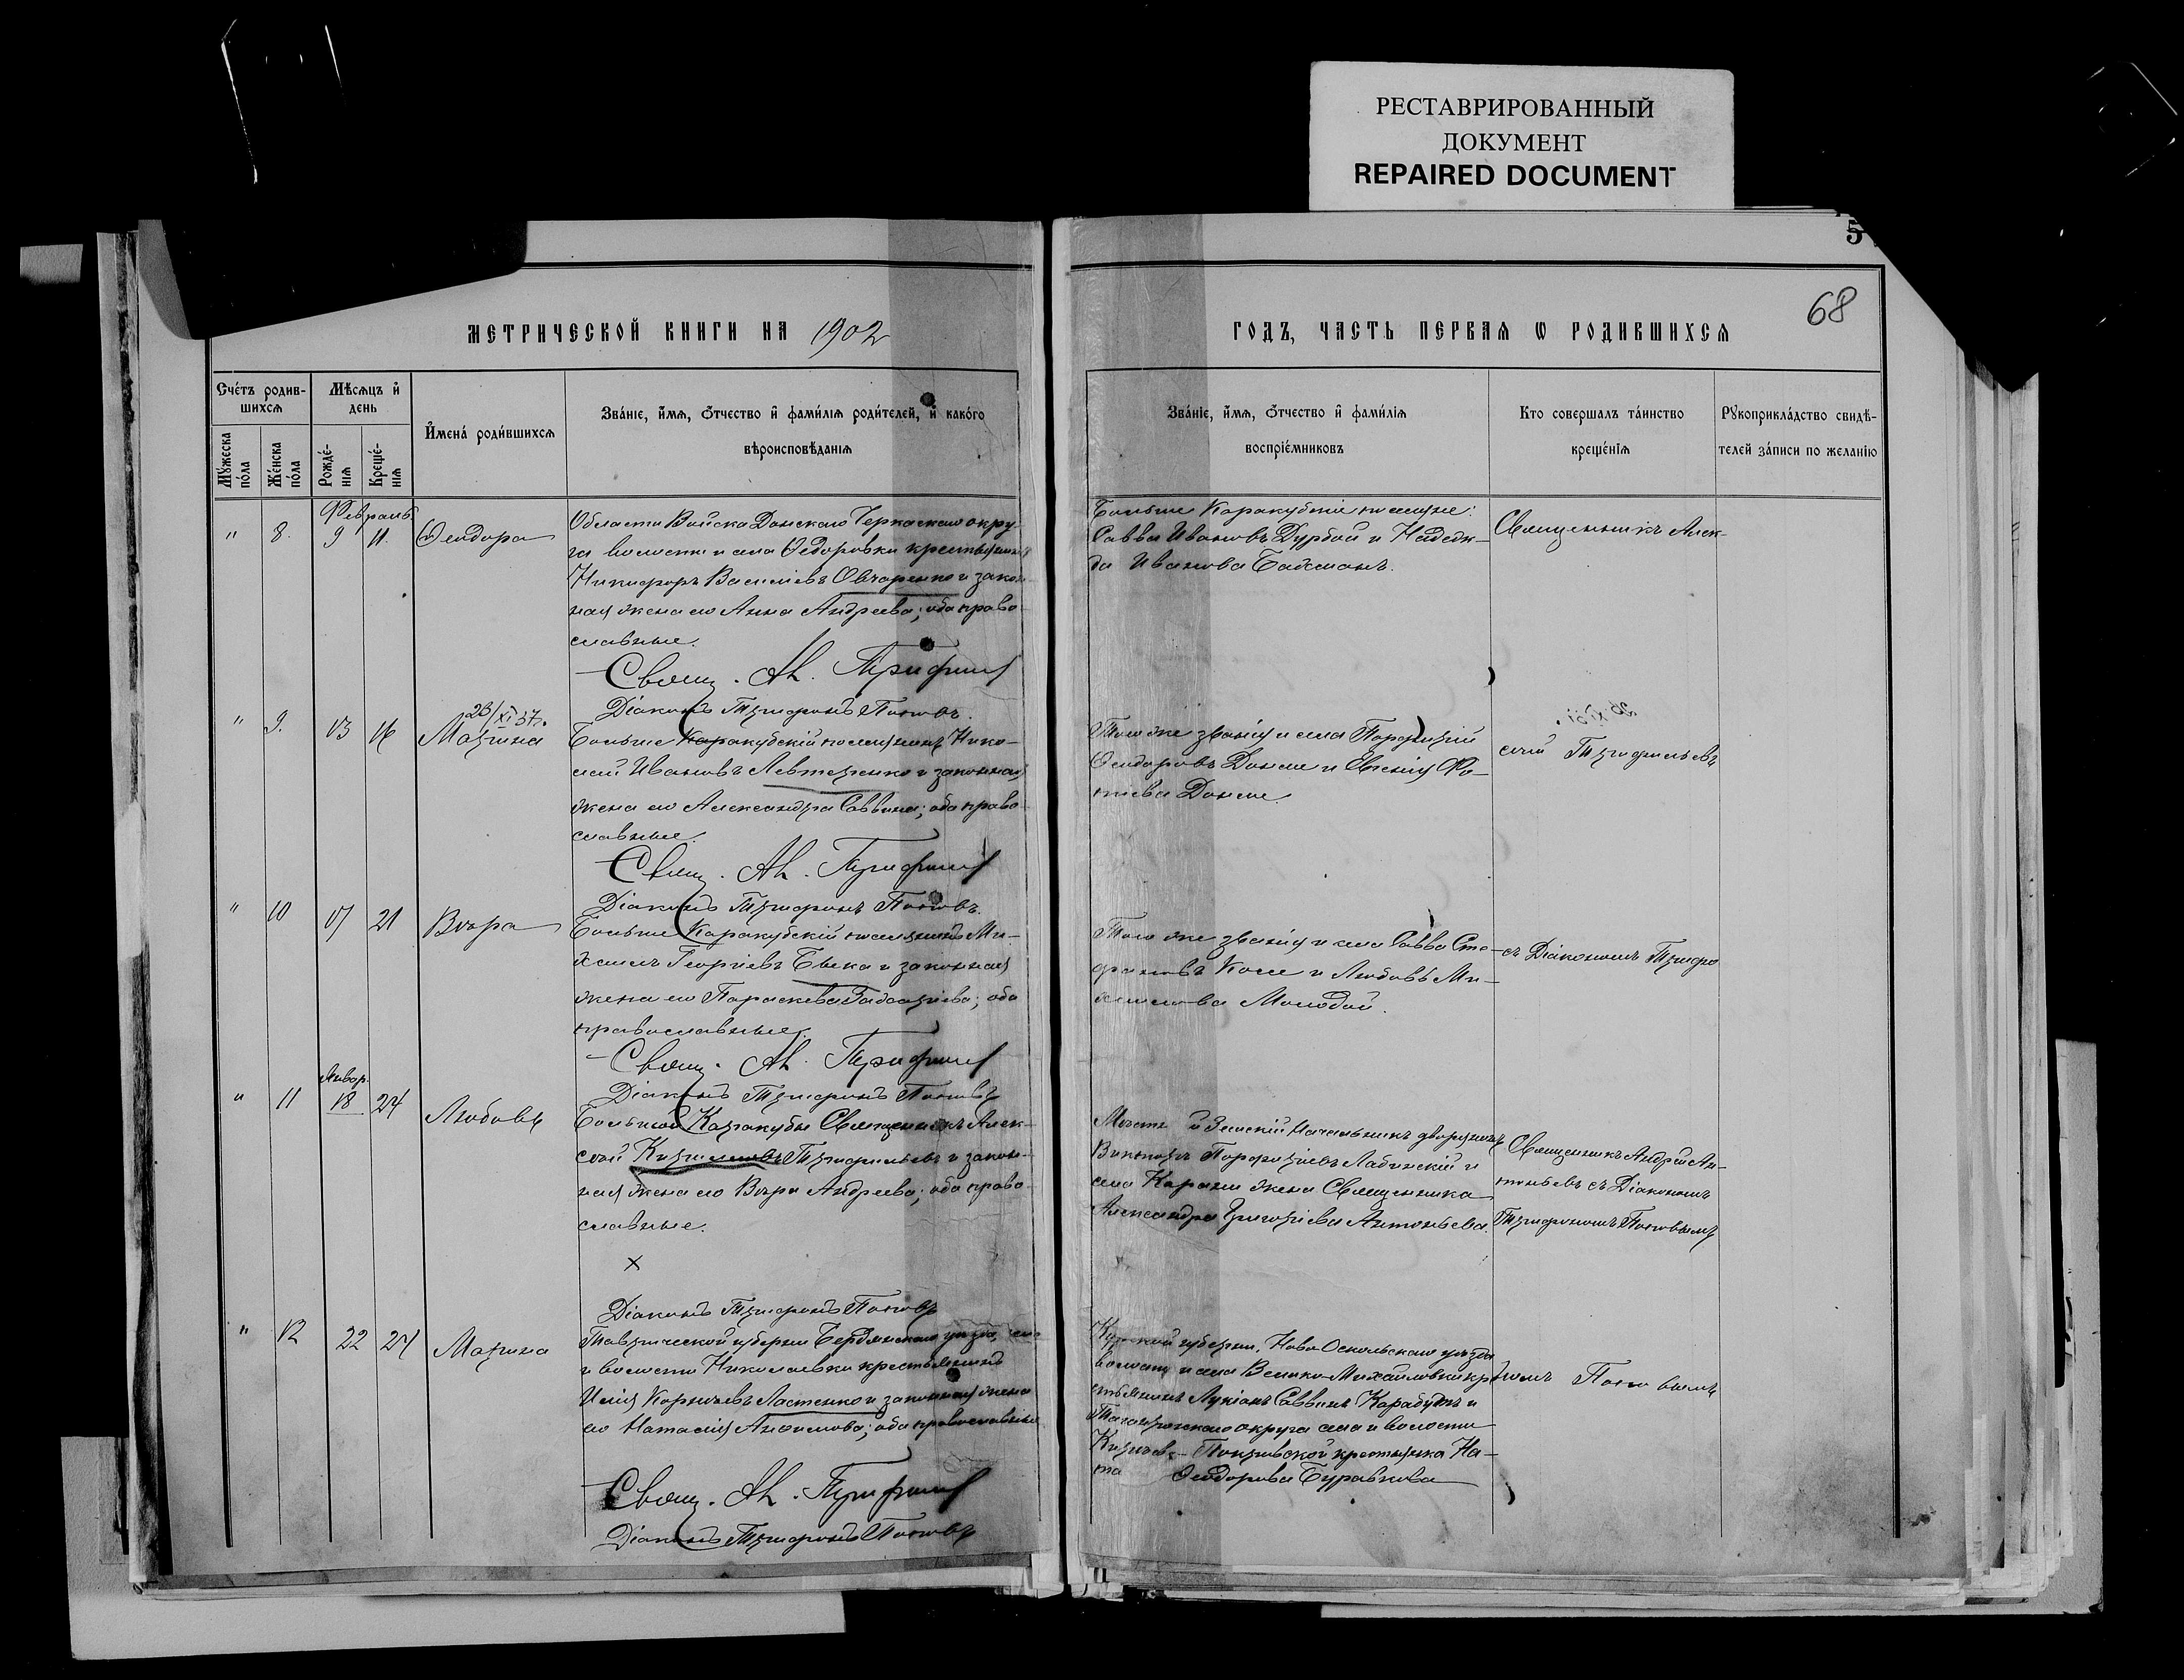 РЕСТАВРИРОВАННЫЙ
ДОКУМЕНТ
REPAIRED DOCUMENT
5
68
МЕТРИЧЕСКОЙ КНИГИ НА 1902
ГОДЪ, ЧАСТЬ ПЕРВАЯ Ѡ РОДИВШИХСЯ
Счетъ родив-
шихся
Мѣсяцъ и
день
Мужеска
пола
Женска
пола
Рожде-
нія
Креще-
нія
Имена родившихся
Званіе, имя, отчество и фамилія родителей, и какого
вѣроисповѣданія
Званіе, имя, отчество и фамилія
воспріемниковъ
Кто совершалъ таинство
крещенія
Рукоприкладство свидѣ-
телей записи по желанію
Февраль
" 8. 9 11. Ѳеодора
Области Войска Донскаго Черкаскаго окру-
га волости и села Ѳедоровки крестьянинъ
Никифоръ Василіевъ Овчаренко и закон-
ная жена его Анна Андреева; оба право-
славные.
Свящ. Ал. Трифил
Діаконъ Трифонъ Поповъ.
Больше Каракубскіе поселяне:
Савва Ивановъ Дурбай и Надеж-
да Иванова Бабсманъ.
Священникъ Алек-
23/XI 37.
" 9. 13 16 Марина
Больше Каракубскій поселянинъ Нико-
лай Ивановъ Левтеренко и законная
жена его Александра Саввина; оба право-
славные.
Свящ. Ал. Трифил
Діаконъ Трифонъ Поповъ.
Того же званія и села Порфирій
Ѳеодоровъ Донше и Евгенія Фо-
тіева Донше.
сѣй Трифильевъ
" 10 17 21 Вѣра
Больше Каракубскій поселянинъ Ми-
хаилъ Георгіевъ Быка и законная
жена его Параскева; оба
православные.
Свящ. Ал. Трифил
Діаконъ Трифонъ Поповъ
Того же званія и села Савва Сте-
фановъ Коссе и Любовь Ми-
хаилова Молодой.
съ Діакономъ Трифо
Январ.
" 11 18 24 Любовь
Большой Каракубы Священникъ Алек-
сѣй Трифильевъ и закон-
ная жена его Вѣра Андреева; оба право-
славные.
×
Діаконъ Трифонъ Поповъ
Мѣстн й Земскій Начальникъ дворянинъ
Викторъ Порфиріевъ Лабинскій и
села Карани жена Священника
Александра Григоріева Антоньева.
Священникъ Андрей Ан-
тоньевъ съ Діакономъ
Трифономъ Поповымъ
" 12 22 24 Марина
Таврической губерніи Бердянскаго уѣзда, села
и волости Николаевки крестьянинъ
Илія Карповъ Ластенко и законная жена
его Наталія Анѳимова; оба православные
Свящ. Ал. Трифил
Діаконъ Трифонъ Поповъ
Курской губерніи, Ново Оскольскаго уѣзда
волости и села Велико-Михайловки кре
стьянинъ Лукіанъ Саввинъ Карабутъ и
Таганрогскаго округа села и волости
Кирѣев- Покровской крестьянка На-
та Ѳеодорова Буравкова
номъ Поповымъ